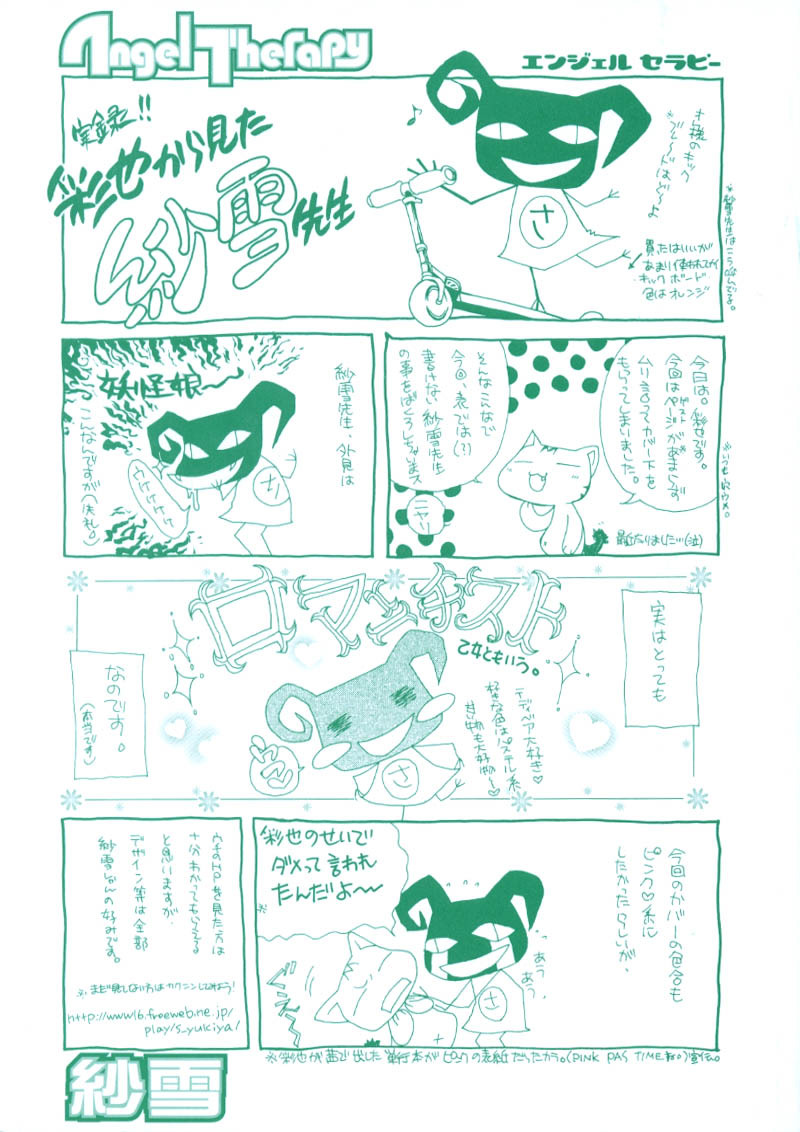 Angel Therapy
エンジェル セラピー
実録!!
彩也から見た
紗雪先生
♪
さ
買たはいいが
あまり使われてない
キックボード
色はオレンジ
※紗雪先生はこうなんです。
今日は。彩也です。
今回はページがあまらず
ムリ言ってカバー下を
もらってしまいました。
そんなこんなで
今回、表では(?)
書けない紗雪先生
の事をばくろしちゃいまス
ニヤリ
※いつも穴ウメ。
紗雪先生、外見は
妖怪娘〜
ウケケケケケ
さ
こんなんですが(失礼)
実はとっても
ロマンチスト
乙女ともいう。
テディベア大好き♡
好きな色はパステル系
甘い物も大好物〜♡
さ
なのです。
(本当です)
今回のカバーの色合も
ピンク♡系に
したかったらしいが、
あう
あう
さ
彩也のせいで
ダメって言われ
たんだよ〜
※
ウチのHPを見た方は
十分わかってもらえてる
と思いますが、
デザイン等は全部
紗雪しゃんの好みです。
※まだ見てない方はカクニンしてみよう!
http://www16.freeweb.ne.jp/
play/s_yukiya/
※彩也が茜で出した単行本がピンクの表紙だったカラ。(PINK PAS TIME
紗雪